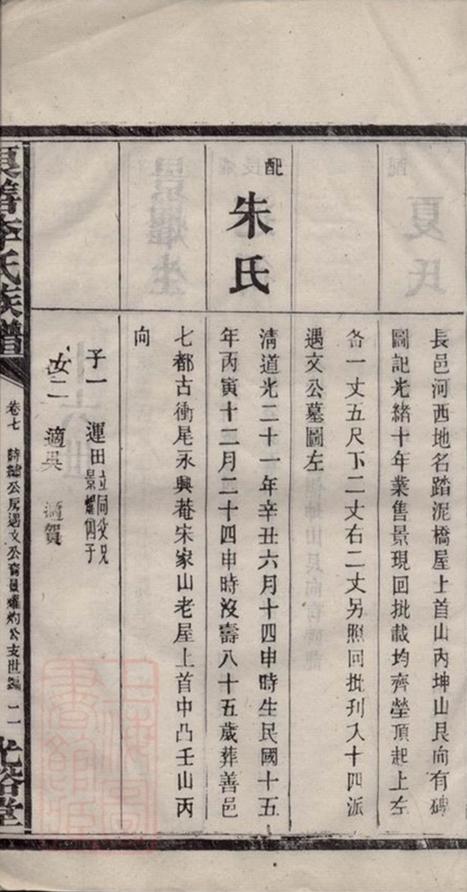 長邑河西地名踏泥橋屋上首山內坤山艮向有碑
圖記光緒十年業售景現囘批載均齊塋頂起上左
各一丈五尺下二丈右二丈另照囘批刊入十四派
遇文公墓圖左
配
朱氏
清道光二十一年辛丑六月十四申時生民國十五
年丙寅十二月二十四申時沒壽八十五歲葬善邑
七都古衝星永興菴宋家山老屋上首中凸壬山丙
向
子一 運田立同父兄景耀四子
女二 適吳 適賀
善李氏族譜
卷七
光裕堂